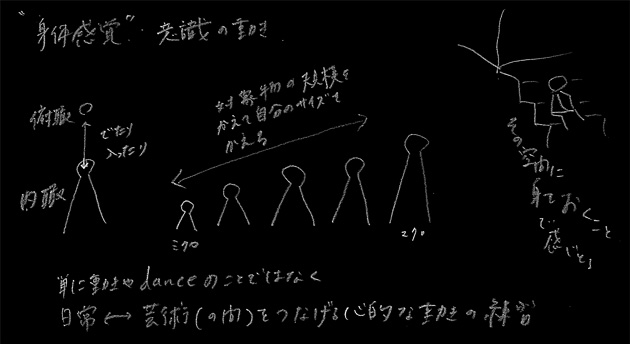 "身体感覚"・意識の動き
俯瞰
でたり
入ったり
内観
対象物の規模を
かえて自分のサイズを
かえる
ミクロ
マクロ
その空間に
身をおくこと
で感じとる
単に動きやdanceのことではなく
日常↔芸術(の間)をつなげる心的な動きの練習